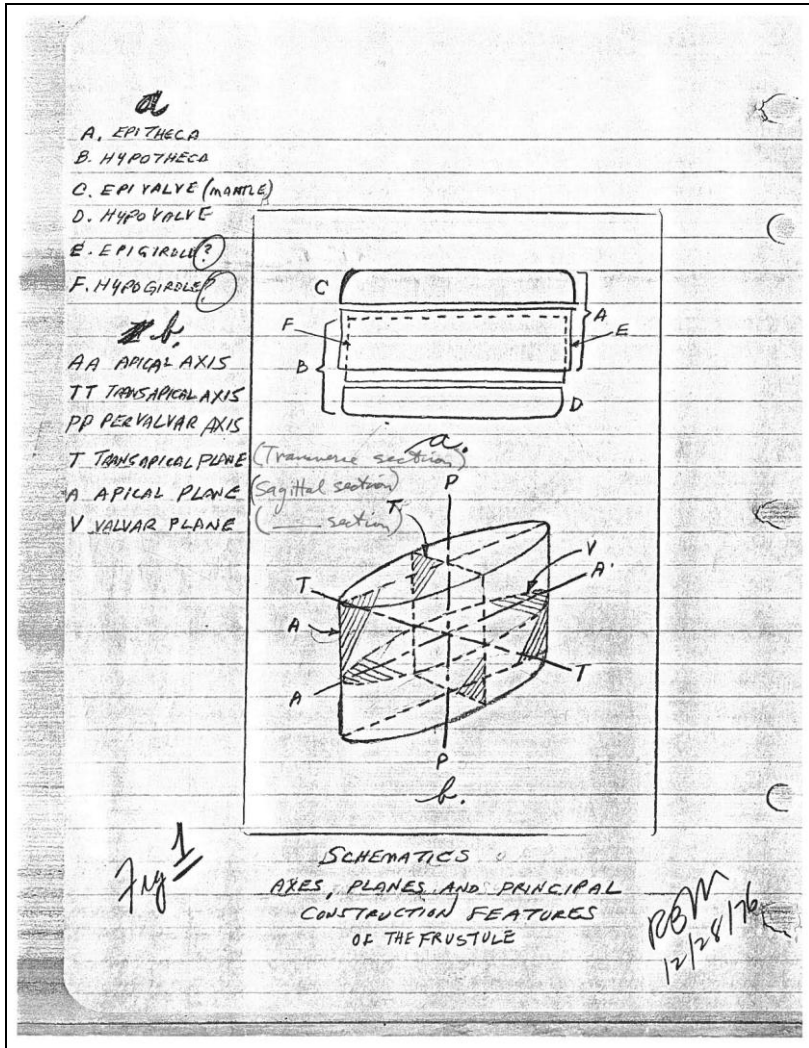 a
A. EPITHECA
B. HYPOTHECA
C. EPIVALVE (MANTLE)
D. HYPOVALVE
E. EPIGIRDLE ?
F. HYPOGIRDLE ?
b.
AA APICAL AXIS
TT TRANSAPICAL AXIS
PP PERVALVAR AXIS
T TRANSAPICAL PLANE (Transverse section)
A APICAL PLANE (Sagittal section)
V VALVAR PLANE ( section)
C
A
F
E
B
D
a.
P
T
V
A'
T
A
T
A
P
b.
Fig 1
SCHEMATICS
AXES, PLANES AND PRINCIPAL
CONSTRUCTION FEATURES
OF THE FRUSTULE
RBM
12/28/76